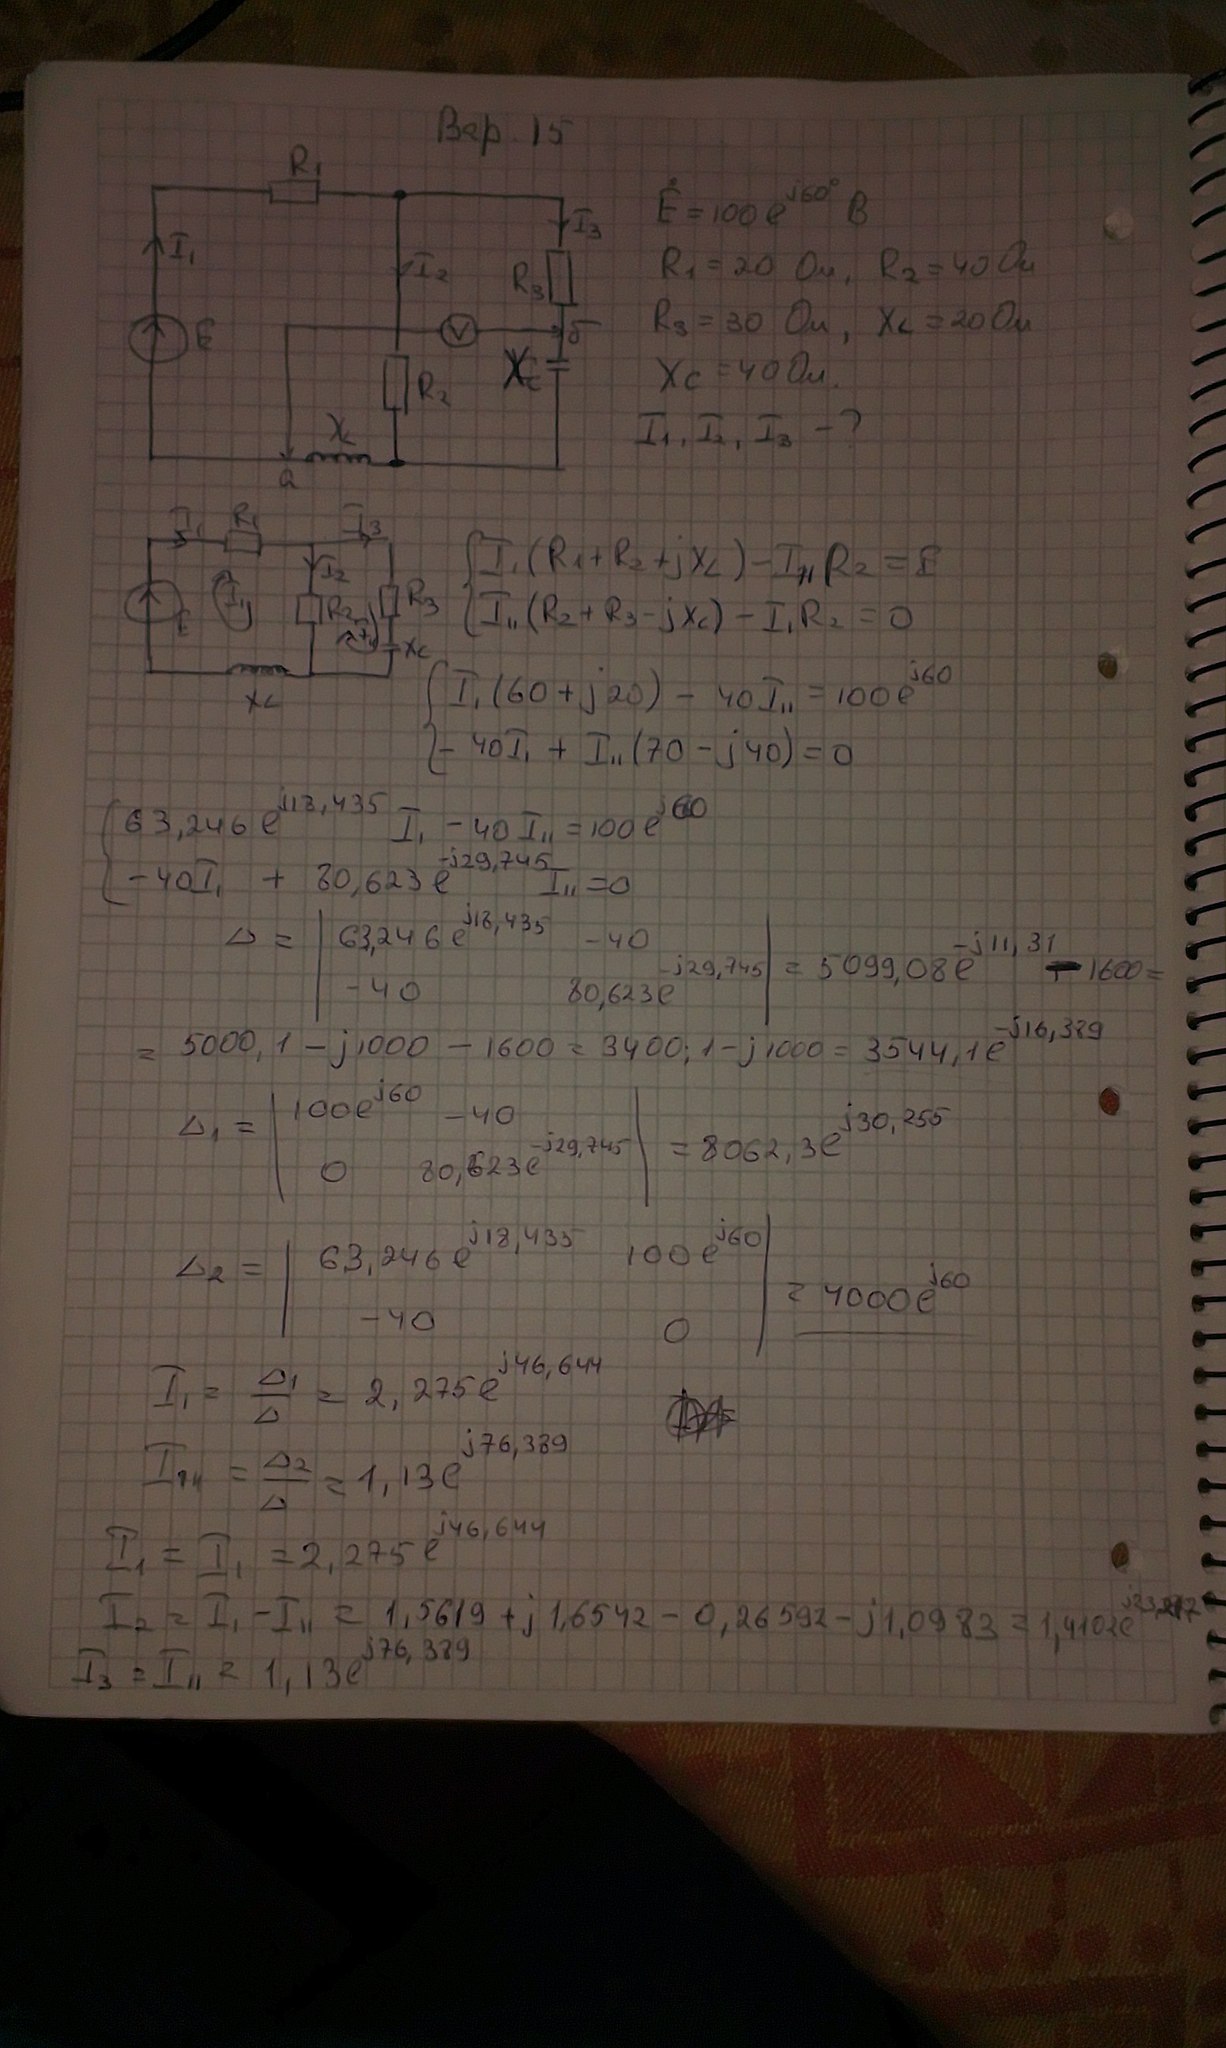 Вар. 15
R1
I1
E
I2
I3
R3
V
б
Xc
R2
XL
a
Ė = 100e^j60° В
R1 = 20 Ом, R2 = 40 Ом
R3 = 30 Ом, XL = 20 Ом
Xc = 40 Ом.
I1, I2, I3 - ?
I1 R1 I3
I2
E R2 R3
Xc
XL
I1(R1 + R2 + jXL) - I11 R2 = E
I11(R2 + R3 - jXc) - I1R2 = 0
I1(60 + j20) - 40I11 = 100e^j60
-40I1 + I11(70 - j40) = 0
63,246e^j18,435 I1 - 40I11 = 100e^j60
-40I1 + 80,623e^-j29,745 I11 = 0
Δ = | 63,246e^j18,435 -40 |
| -40 80,623e^-j29,745 | = 5099,08e^-j11,31 - 1600 =
= 5000,1 - j1000 - 1600 = 3400,1 - j1000 = 3544,1e^-j16,389
Δ1 = | 100e^j60 -40 |
| 0 80,623e^-j29,745 | = 8062,3e^j30,255
Δ2 = | 63,246e^j18,435 100e^j60 |
| -40 0 | = 4000e^j60
I1 = Δ1/Δ = 2,275e^j46,644
I11 = Δ2/Δ = 1,13e^j76,389
I1 = I1 = 2,275e^j46,644
I2 = I1 - I11 = 1,5619 + j1,6542 - 0,26592 - j1,0983 = 1,4102e
I3 = I11 = 1,13e^j76,389